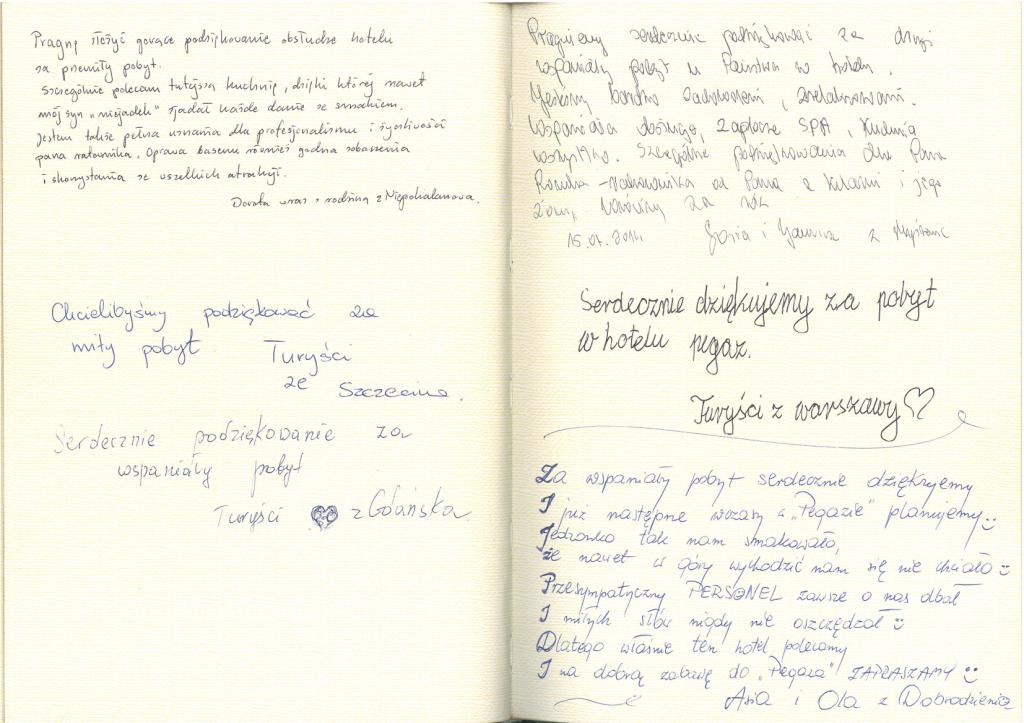 Pragnę złożyć gorące podziękowanie obsłudze hotelu
za przemiły pobyt.
Szczególnie polecam tutejszą kuchnię, dzięki której nawet
mój syn „niejadek” zjadał każde danie ze smakiem.
Jestem także pełna uznania dla profesjonalizmu i życzliwości
pana ratownika. Oprawa basenu również godna zobaczenia
i skorzystania ze wszelkich atrakcji.
Dorota wraz z rodziną z Niepokalanowa.
Chcielibyśmy podziękować za
miły pobyt
Turyści
ze Szczecina.
Serdecznie podziękowanie za
wspaniały pobyt
Turyści z Gdańska
Pragniemy serdecznie podziękować za drugi
wspaniały pobyt u Państwa w hotelu.
Jesteśmy bardzo zadowoleni, zrelaksowani.
Wspaniała obsługa, zaplecze SPA, kuchnia
wszystko. Szczególne podziękowania dla Pana
od Pana z i jego
żony, wrócimy za rok
15.07.2014 Gosia i z
Serdecznie dziękujemy za pobyt
w hotelu pegaz.
Turyści z warszawy ♡
Za wspaniały pobyt serdecznie dziękujemy
I już następne wczasy w „Pegazie” planujemy
Jedzonko tak nam smakowało,
że nawet w góry wychodzić nam się nie chciało
Przesympatyczny PERSONEL zawsze o nas dbał
I miłych słów nigdy nie oszczędzał
Dlatego właśnie ten hotel polecamy
I na dobrą zabawę do „Pegaza” ZAPRASZAMY
Asia i Ola z Dobrodzienia